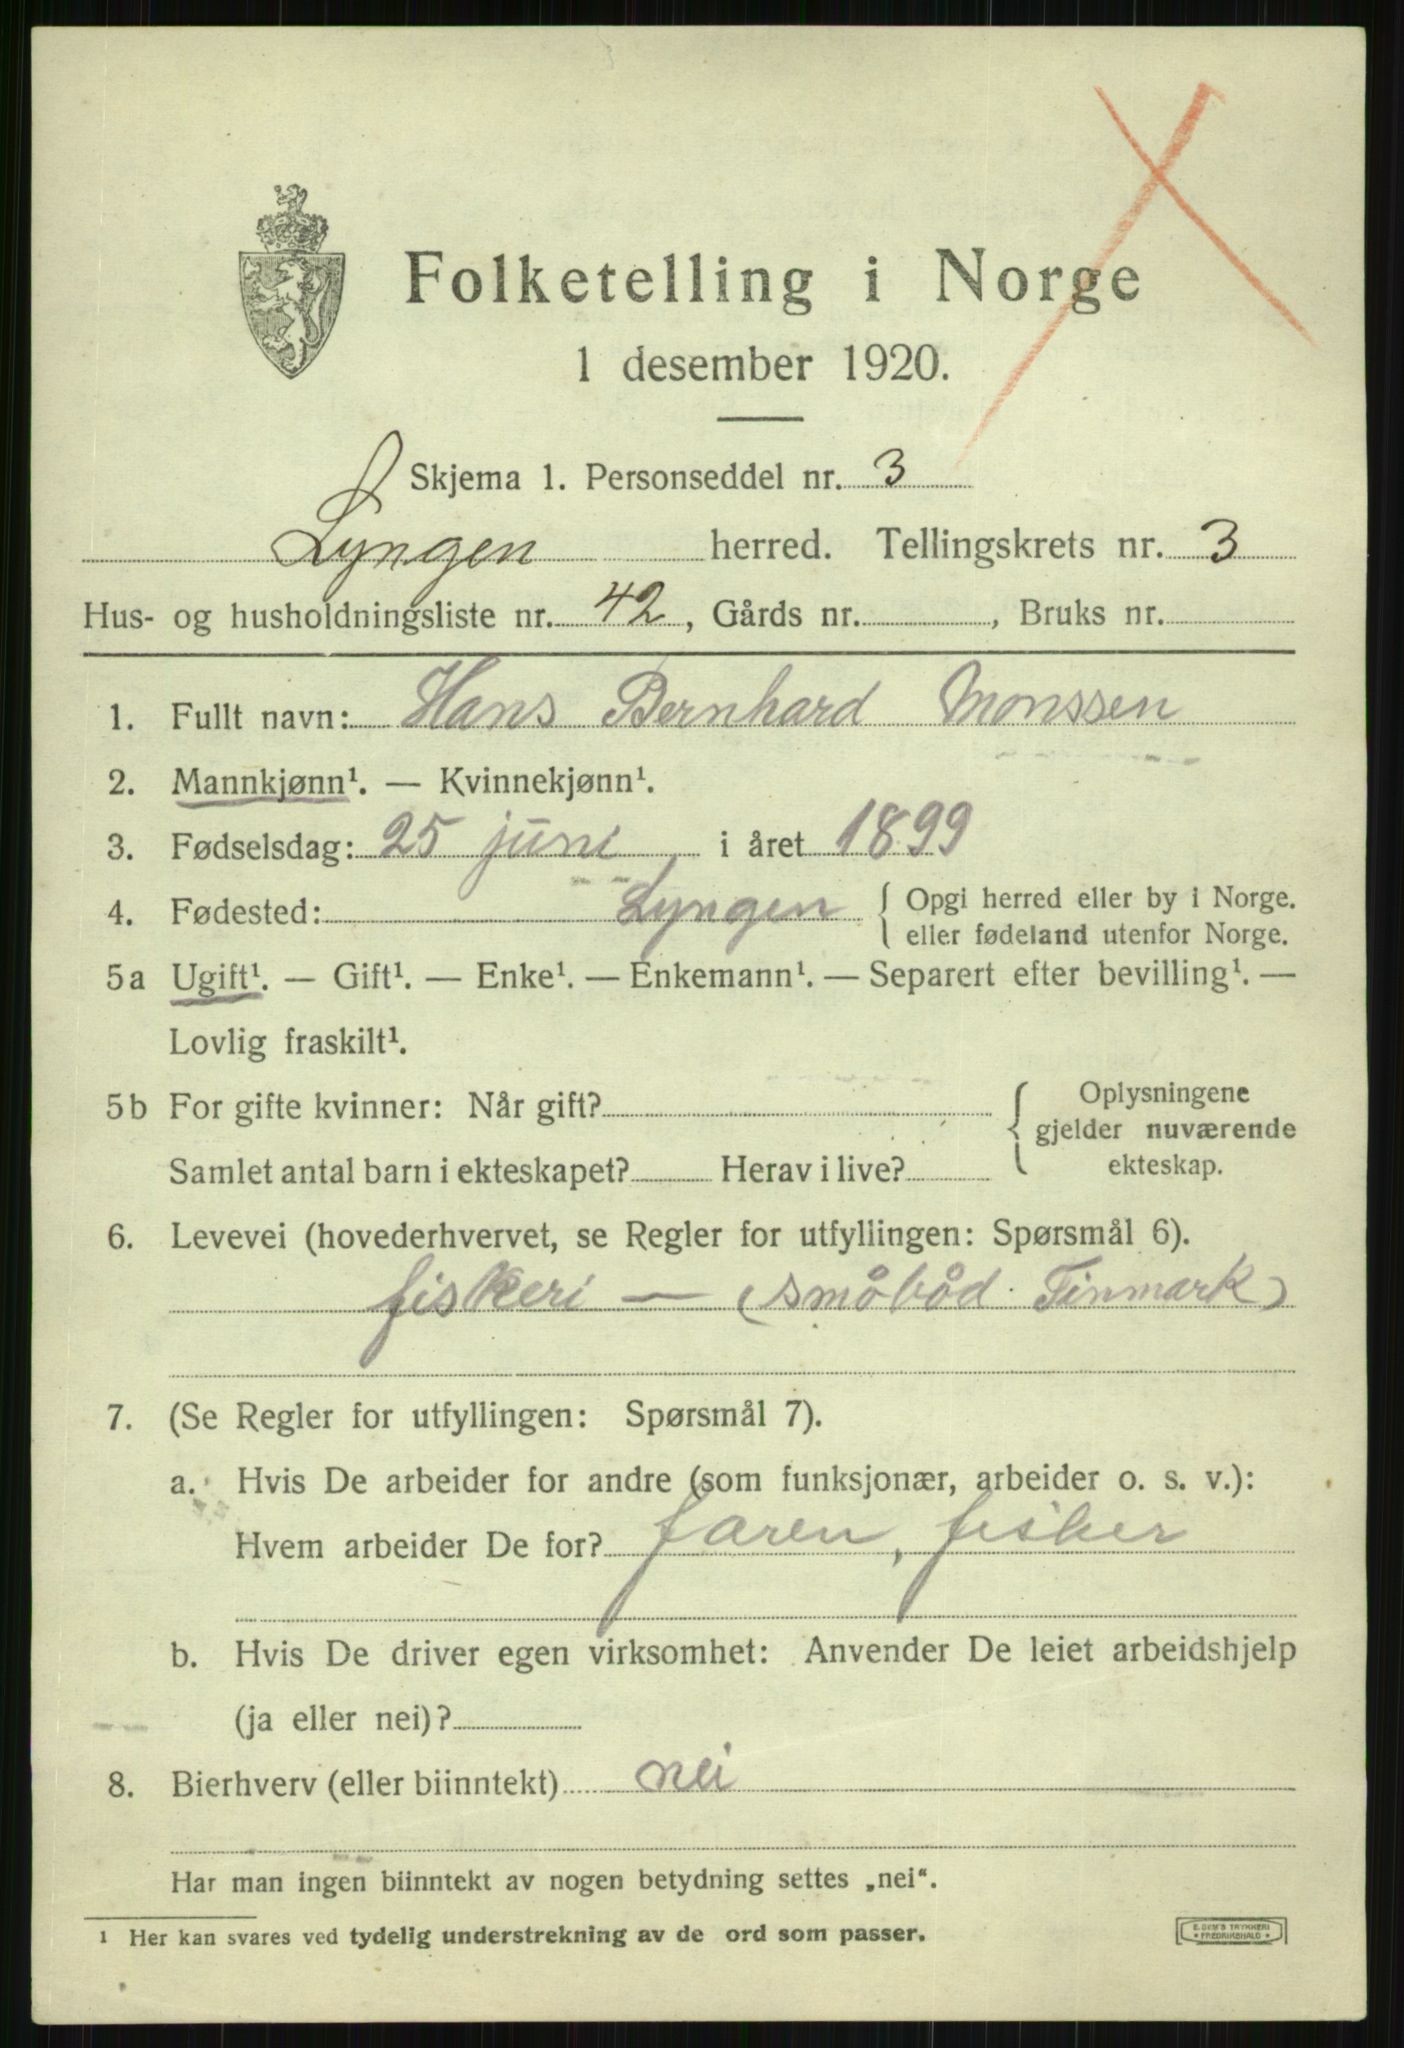 Folketelling i Norge
1 desember 1920.
Skjema 1. Personseddel nr. 3
Lyngen herred. Tellingskrets nr. 3
Hus- og husholdningsliste nr. 42, Gårds nr. , Bruks nr.
1. Fullt navn: Hans Bernhard Monssen
2. Mannkjønn¹. — Kvinnekjønn¹.
3. Fødselsdag: 25 juni i året 1899
4. Fødested: Lyngen { Opgi herred eller by i Norge.
eller fødeland utenfor Norge.
5a Ugift¹. — Gift¹. — Enke¹. — Enkemann¹. — Separert efter bevilling¹. —
Lovlig fraskilt¹.
5b For gifte kvinner: Når gift? { Oplysningene
gjelder nuværende
Samlet antal barn i ekteskapet? Herav i live? ekteskap.
6. Levevei (hovederhvervet, se Regler for utfyllingen: Spørsmål 6).
fiskeri — (småbåd. Finmark)
7. (Se Regler for utfyllingen: Spørsmål 7).
a. Hvis De arbeider for andre (som funksjonær, arbeider o. s. v.):
Hvem arbeider De for? faren, fisker
b. Hvis De driver egen virksomhet: Anvender De leiet arbeidshjelp
(ja eller nei)?
8. Bierhverv (eller biinntekt) nei
Har man ingen biinntekt av nogen betydning settes „nei“.
¹ Her kan svares ved tydelig understrekning av de ord som passer.
E. SEM'S TRYKKERI
• FREDRIKSHALD •